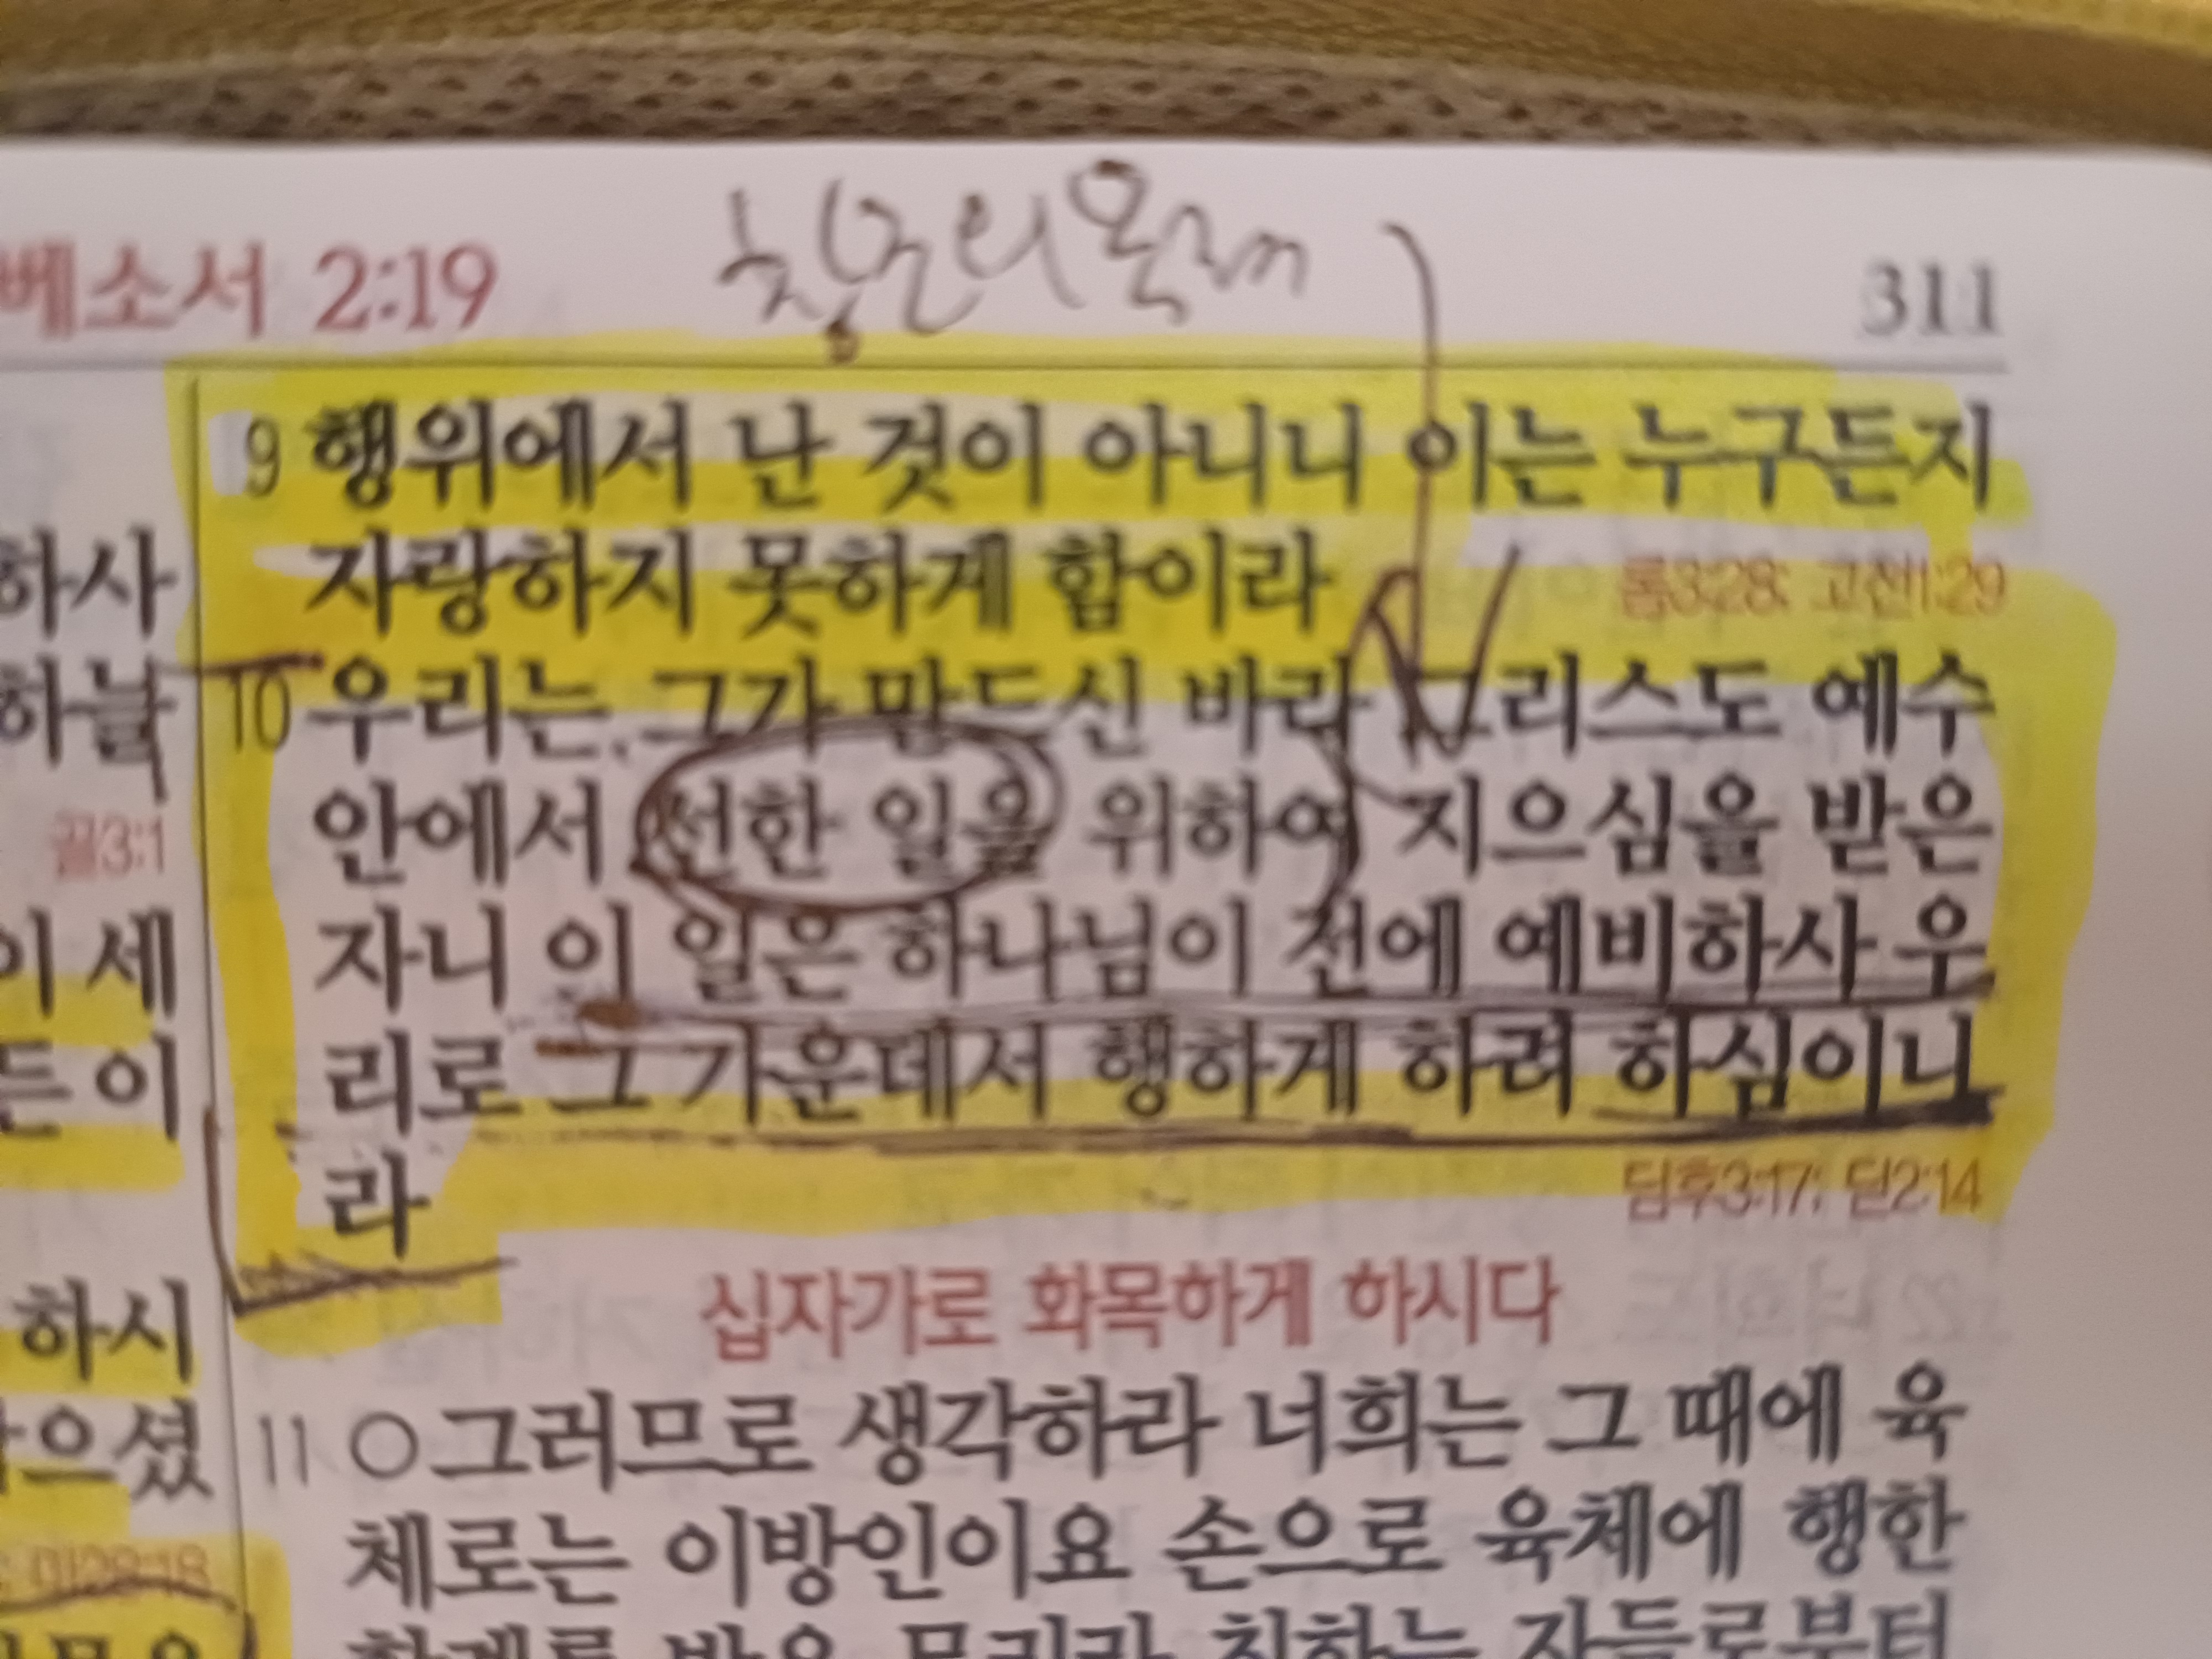 베소서 2:19
311
하사
하늘
골3:1
이 세
든 이
하시
으셨
9 행위에서 난 것이 아니니 이는 누구든지
자랑하지 못하게 함이라 롬3:28; 고전1:29
10 우리는 그가 만드신 바라 그리스도 예수
안에서 선한 일을 위하여 지으심을 받은
자니 이 일은 하나님이 전에 예비하사 우
리로 그 가운데서 행하게 하려 하심이니
라 딤후3:17; 딛2:14
십자가로 화목하게 하시다
11 ○그러므로 생각하라 너희는 그 때에 육
체로는 이방인이요 손으로 육체에 행한
할례를 받은 무리라 칭하는 자들로부터